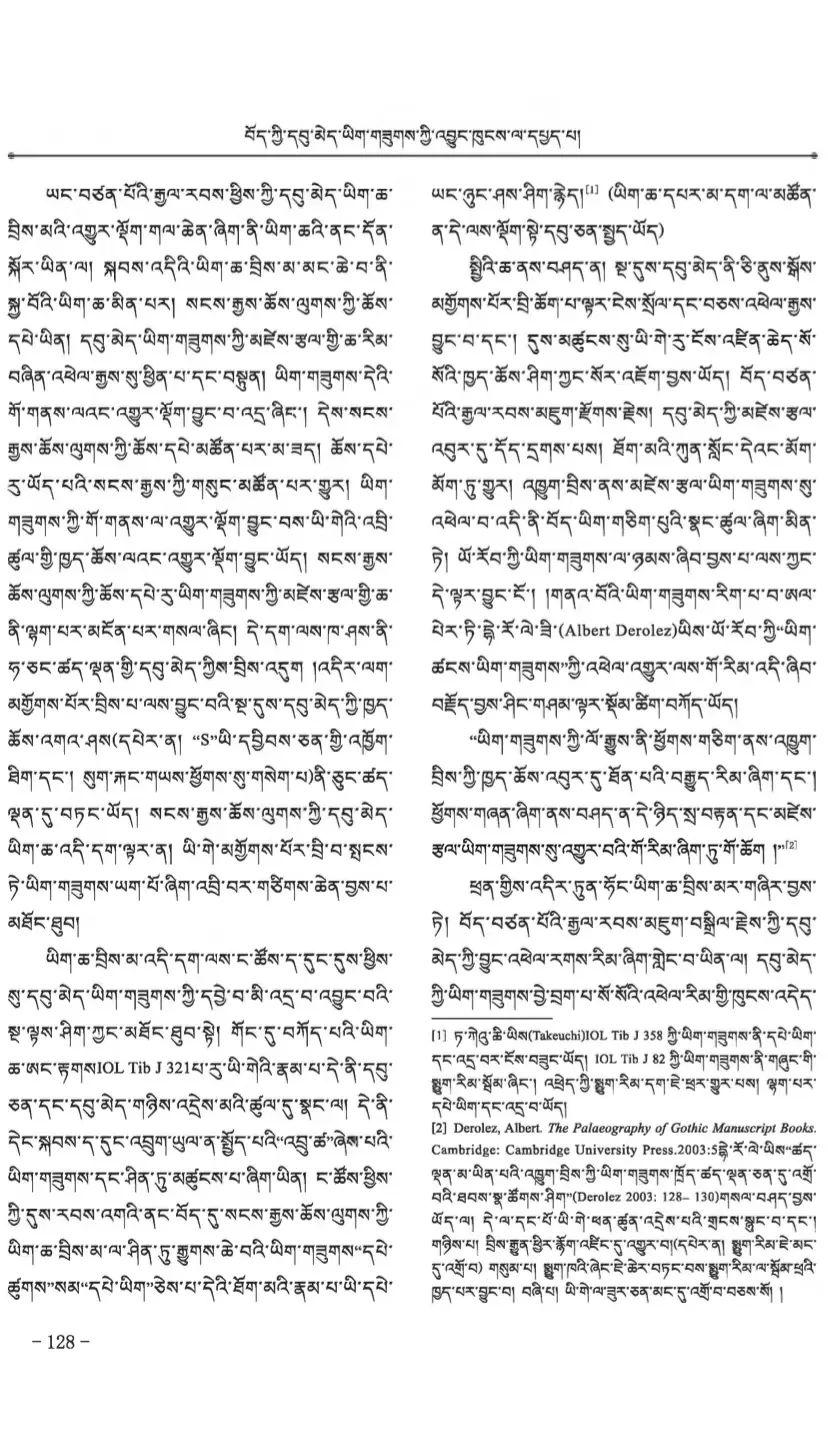 བོད་ཀྱི་དབུ་མེད་ཡིག་གཟུགས་ཀྱི་འབྱུང་ཁུངས་ལ་དཔྱད་པ།
ཡང་བཙན་པོའི་རྒྱལ་རབས་ཕྱིས་ཀྱི་དབུ་མེད་ཡིག་ཆ་
བྲིས་མའི་འགྱུར་ལྡོག་གལ་ཆེན་ཞིག་ནི་ཡིག་ཆའི་ནང་དོན་
སྐོར་ཡིན་ལ། སྐབས་འདིའི་ཡིག་ཆ་བྲིས་མ་མང་ཆེ་བ་ནི་
སྐྱ་བོའི་ཡིག་ཆ་མིན་པར། སངས་རྒྱས་ཆོས་ལུགས་ཀྱི་ཆོས་
དཔེ་ཡིན། དབུ་མེད་ཡིག་གཟུགས་ཀྱི་མཛེས་རྩལ་གྱི་ཆ་རིམ་
བཞིན་འཕེལ་རྒྱས་སུ་ཕྱིན་པ་དང་བསྟུན། ཡིག་གཟུགས་དེའི་
གོ་གནས་ལའང་འགྱུར་ལྡོག་བྱུང་བ་འདྲ་ཞིང་། དེས་སངས་
རྒྱས་ཆོས་ལུགས་ཀྱི་ཆོས་དཔེ་མཚོན་པར་མ་ཟད། ཆོས་དཔེ་
རུ་ཡོད་པའི་སངས་རྒྱས་ཀྱི་གསུང་མཚོན་པར་གྱུར། ཡིག་
གཟུགས་ཀྱི་གོ་གནས་ལ་འགྱུར་ལྡོག་བྱུང་བས་ཡི་གེའི་འབྲི་
ཚུལ་གྱི་ཁྱད་ཆོས་ལའང་འགྱུར་ལྡོག་བྱུང་ཡོད། སངས་རྒྱས་
ཆོས་ལུགས་ཀྱི་ཆོས་དཔེ་རུ་ཡིག་གཟུགས་ཀྱི་མཛེས་རྩལ་གྱི་ཆ་
ནི་ལྷག་པར་མངོན་པར་གསལ་ཞིང་། དེ་དག་ལས་ཁ་ཤས་ནི་
ཧ་ཅང་ཚད་ལྡན་གྱི་དབུ་མེད་ཀྱིས་བྲིས་འདུག །འདིར་ལག་
མགྱོགས་པོར་བྲིས་པ་ལས་བྱུང་བའི་སྔ་དུས་དབུ་མེད་ཀྱི་ཁྱད་
ཆོས་འགའ་ཤས(དཔེར་ན། “S”ཡི་དབྱིབས་ཅན་གྱི་འཁྱོག་
ཐིག་དང་། སུག་རྐང་གཡས་ཕྱོགས་སུ་གསེག་པ)ནི་ཅུང་ཚད་
ལྡན་དུ་བཏང་ཡོད། སངས་རྒྱས་ཆོས་ལུགས་ཀྱི་དབུ་མེད་
ཡིག་ཆ་འདི་དག་ལྟར་ན། ཡི་གེ་མགྱོགས་པོར་བྲི་བ་སྤངས་
ཏེ་ཡིག་གཟུགས་ཡག་པོ་ཞིག་འབྲི་བར་གཙིགས་ཆེན་བྱས་པ་
མཐོང་ཐུབ།
ཡིག་ཆ་བྲིས་མ་འདི་དག་ལས་ང་ཚོས་ད་དུང་དུས་ཕྱིས་
སུ་དབུ་མེད་ཡིག་གཟུགས་ཀྱི་དབྱེ་བ་མི་འདྲ་བ་འབྱུང་བའི་
སྔ་ལྟས་ཤིག་ཀྱང་མཐོང་ཐུབ་སྟེ། གོང་དུ་བཀོད་པའི་ཡིག་
ཆ་ཨང་རྟགསIOL Tib J 321པ་རུ་ཡི་གེའི་རྣམ་པ་དེ་ནི་དབུ་
ཅན་དང་དབུ་མེད་གཉིས་འདྲེས་མའི་ཚུལ་དུ་སྣང་ལ། དེ་ནི་
དེང་སྐབས་ད་དུང་འབྲུག་ཡུལ་ན་སྤྱོད་པའི་“འབྲུ་ཚ”ཞེས་པའི་
ཡིག་གཟུགས་དང་ཤིན་ཏུ་མཚུངས་པ་ཞིག་ཡིན། ང་ཚོས་ཕྱིས་
ཀྱི་དུས་རབས་འགའི་ནང་བོད་དུ་སངས་རྒྱས་ཆོས་ལུགས་ཀྱི་
ཡིག་ཆ་བྲིས་མ་ལ་ཤིན་ཏུ་རྒྱུགས་ཆེ་བའི་ཡིག་གཟུགས་“དཔེ་
ཚུགས”སམ་“དཔེ་ཡིག”ཅེས་པ་དེའི་ཐོག་མའི་རྣམ་པ་ཡི་དཔེ་
ཡང་ཉུང་ཤས་ཤིག་རྙེད།[1] (ཡིག་ཆ་དཔར་མ་དག་ལ་མཚོན་
ན་དེ་ལས་ལྡོག་སྟེ་དབུ་ཅན་སྤྱད་ཡོད)
སྤྱིའི་ཆ་ནས་བཤད་ན། སྔ་དུས་དབུ་མེད་ནི་ཅི་ནུས་སྒོས་
མགྱོགས་པོར་བྲི་ཆོག་པ་ལྟར་ངེས་སྲོལ་དང་བཅས་འཕེལ་རྒྱས་
བྱུང་བ་དང་། དུས་མཚུངས་སུ་ཡི་གེ་རུ་ངོས་འཛིན་ཆེད་སོ་
སོའི་ཁྱད་ཆོས་ཤིག་ཀྱང་སོར་འཇོག་བྱས་ཡོད། བོད་བཙན་
པོའི་རྒྱལ་རབས་མཇུག་རྫོགས་རྗེས། དབུ་མེད་ཀྱི་མཛེས་རྩལ་
འབུར་དུ་དོད་དྲགས་པས། ཐོག་མའི་ཀུན་སློང་དེའང་མོག་
མོག་ཏུ་གྱུར། འཁྱུག་བྲིས་ནས་མཛེས་རྩལ་ཡིག་གཟུགས་སུ་
འཕེལ་བ་འདི་ནི་བོད་ཡིག་གཅིག་པུའི་སྣང་ཚུལ་ཞིག་མིན་
ཏེ། ཡོ་རོབ་ཀྱི་ཡིག་གཟུགས་ལ་ཉམས་ཞིབ་བྱས་པ་ལས་ཀྱང་
དེ་ལྟར་བྱུང་ངོ་། །གནའ་བོའི་ཡིག་གཟུགས་རིག་པ་བ་ཨལ་
པེར་ཏི་ཌྷེ་རོ་ལེ་ཟི་(Albert Derolez)ཡིས་ཡོ་རོབ་ཀྱི་“ཡིག་
ཚངས་ཡིག་གཟུགས”ཀྱི་འཕེལ་འགྱུར་ལས་གོ་རིམ་འདི་ཞིབ་
བརྗོད་བྱས་ཤིང་གཤམ་ལྟར་སྡོམ་ཚིག་བཀོད་ཡོད།
“ཡིག་གཟུགས་ཀྱི་ལོ་རྒྱུས་ནི་ཕྱོགས་གཅིག་ནས་འཁྱུག་
བྲིས་ཀྱི་ཁྱད་ཆོས་འབུར་དུ་ཐོན་པའི་བརྒྱུད་རིམ་ཞིག་དང་།
ཕྱོགས་གཞན་ཞིག་ནས་བཤད་ན་དེ་ཉིད་སྲ་བརྟན་དང་མཛེས་
རྩལ་ཡིག་གཟུགས་སུ་འགྱུར་བའི་གོ་རིམ་ཞིག་ཏུ་གོ་ཆོག །”[2]
ཕྲན་གྱིས་འདིར་ཏུན་ཧོང་ཡིག་ཆ་བྲིས་མར་གཞིར་བྱས་
ཏེ། བོད་བཙན་པོའི་རྒྱལ་རབས་མཇུག་བསྒྲིལ་རྗེས་ཀྱི་དབུ་
མེད་ཀྱི་བྱུང་འཕེལ་རགས་རིམ་ཞིག་གླེང་བ་ཡིན་ལ། དབུ་མེད་
ཀྱི་ཡིག་གཟུགས་བྱེ་བྲག་པ་སོ་སོའི་འཕེལ་རིམ་གྱི་ཁུངས་འདེད་
[1] ཏ་ཀེའུ་ཆི་ཡིས(Takeuchi)IOL Tib J 358 ཀྱི་ཡིག་གཟུགས་ནི་དཔེ་ཡིག་
དང་འདྲ་བར་ངོས་བཟུང་ཡོད། IOL Tib J 82 ཀྱི་ཡིག་གཟུགས་ནི་གཞུང་གི་
སྨྱུག་རིམ་སྦོམ་ཞིང་། འཕྲེད་ཀྱི་སྨྱུག་རིམ་དག་ཇེ་ཕྲར་གྱུར་པས། ལྷག་པར་
དཔེ་ཡིག་དང་འདྲ་བ་ཡོད།
[2] Derolez, Albert. The Palaeography of Gothic Manuscript Books.
Cambridge: Cambridge University Press.2003:5ཌྷེ་རོ་ལེ་ཡིས“ཚད་
ལྡན་མ་ཡིན་པའི་འཁྱུག་བྲིས་ཀྱི་ཡིག་གཟུགས་ཁྲོད་ཚད་ལྡན་ཅན་དུ་འགྲོ་
བའི་ཐབས་སྣ་ཚོགས་ཤིག”(Derolez 2003: 128– 130)གསལ་བཤད་བྱས་
ཡོད་ལ། དེ་ལ་དང་པོ་ཡི་གེ་ཕན་ཚུན་འདྲེས་པའི་གྲངས་སྣུང་བ་དང་།
གཉིས་པ། བྲིས་རྒྱུན་ཕྱིར་རྟོག་འཛིང་དུ་འགྱུར་བ།(དཔེར་ན། སྨྱུག་རིམ་ཇེ་མང་
དུ་འགྲོ་བ) གསུམ་པ། སྨྱུག་ཁའི་ཞེང་ཇེ་ཆེར་བཏང་བས་སྨྱུག་རིམ་ལ་སྦོམ་ཕྲའི་
ཁྱད་པར་བྱུང་བ། བཞི་པ། ཡི་གེ་ལ་ཟུར་ཅན་མང་དུ་འགྲོ་བ་བཅས་སོ། །
– 128 –